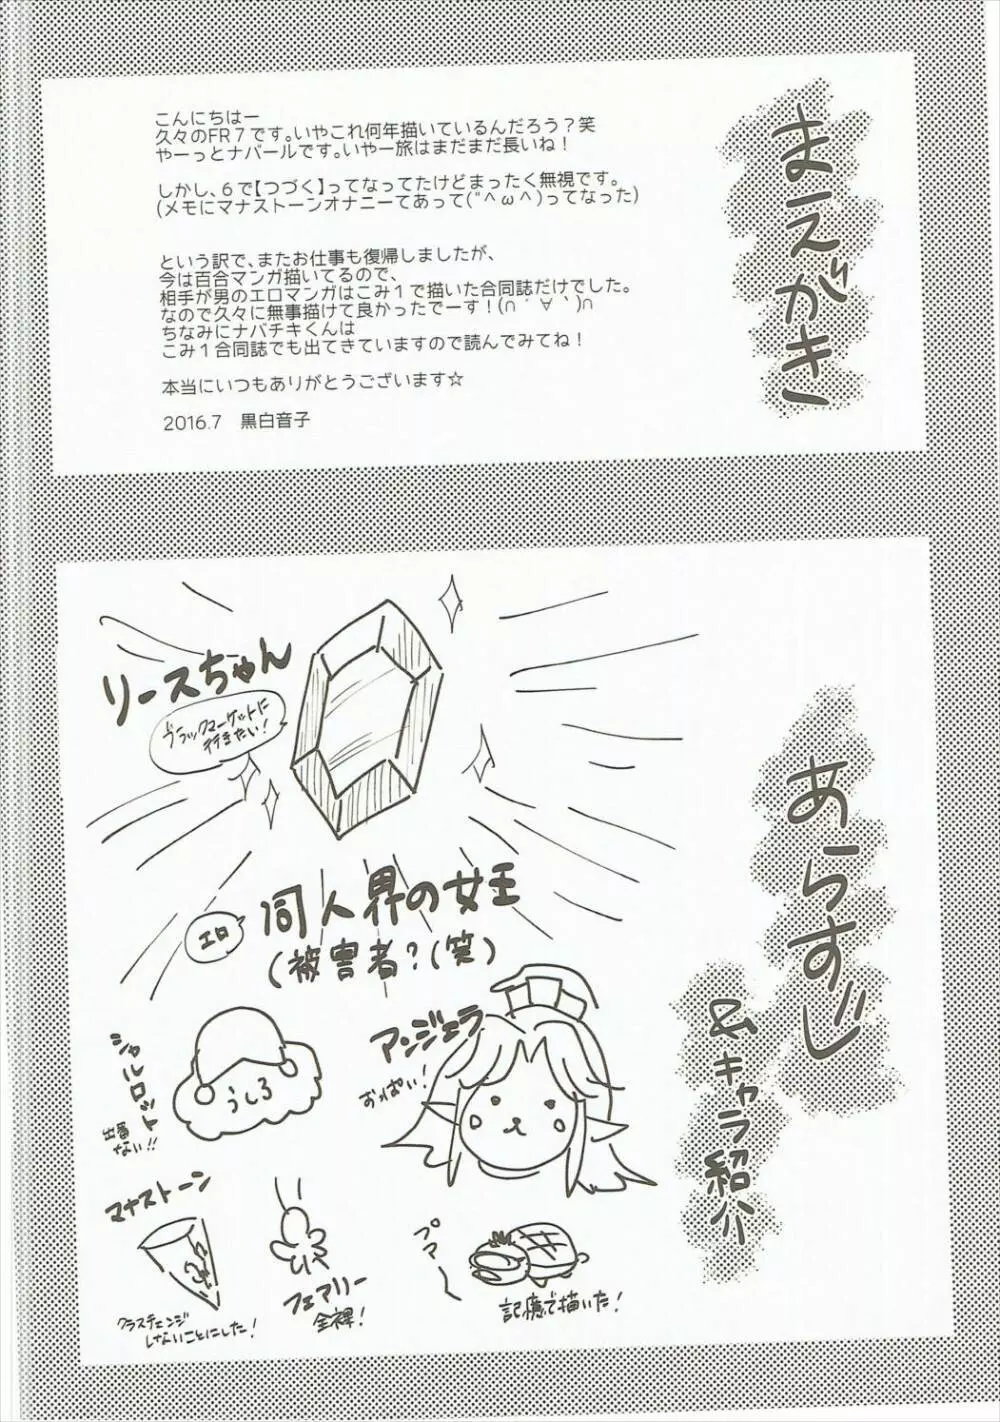 まえがき
こんにちはー
久々のFR7です。いやこれ何年描いているんだろう?笑
やーっとナバールです。いやー旅はまだまだ長いね!
しかし、6で【つづく】ってなってたけどまったく無視です。
(メモにマナストーンオナニーてあって(“^ω^)ってなった)
という訳で、またお仕事も復帰しましたが、
今は百合マンガ描いてるので、
相手が男のエロマンガはこみ1で描いた合同誌だけでした。
なので久々に無事描けて良かったでーす!(∩´∀`)∩
ちなみにナバチキくんは
こみ1合同誌でも出てきていますので読んでみてね!
本当にいつもありがとうございます☆
2016.7 黒白音子
あらすじ
&キャラ紹介
リースちゃん
ブラックマーケットに
行きたい!
エロ
同人界の女王
(被害者?(笑)
アンジェラ
おっぱい!
シャルロット
出番
ない!!
うしろ
マナストーン
クラスチェンジ
しないことにした!
フェアリー
全裸!
ブマー
記憶で描いた!